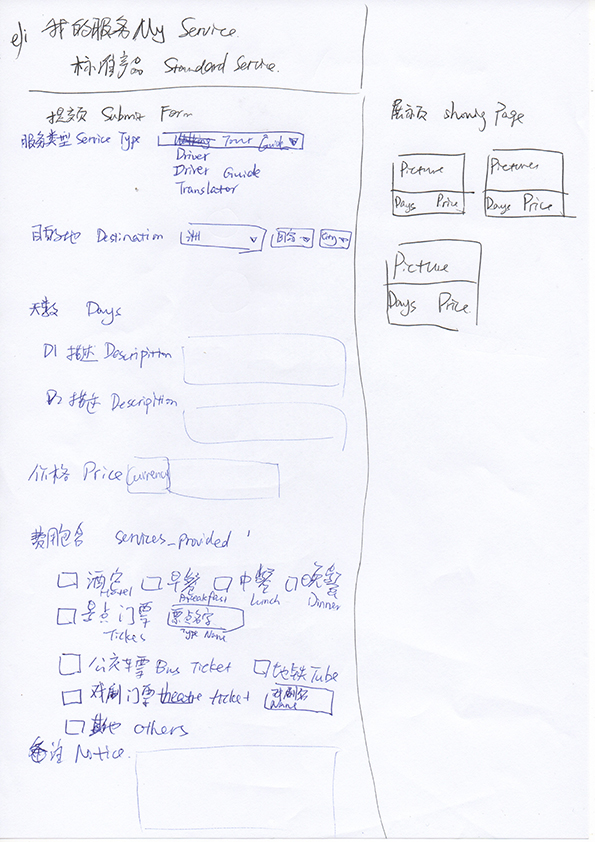 e/i 我的服务 My Service.
标准产品 Standard Service.
提交页 Submit Form
服务类型 Service Type
Tour Guide
Driver
Driver Guide
Translator
目的地 Destination 洲 国家 City
天数 Days
D1 描述 Descripition
D2 描述 Descripition
价格 Price Currency
费用包含 Services_provided
酒店 Hotel 早餐 Breakfast 中餐 Lunch 晚餐 Dinner
景点门票 Tickets 景点名字 Type Name
公交车票 Bus Ticket 地铁 Tube
戏剧门票 theatre ticket 戏剧名 Name
其他 Others
备注 Notice.
展示页 showing Page
Picture
Days Price
Pictures
Days Price
Picture
Days Price.